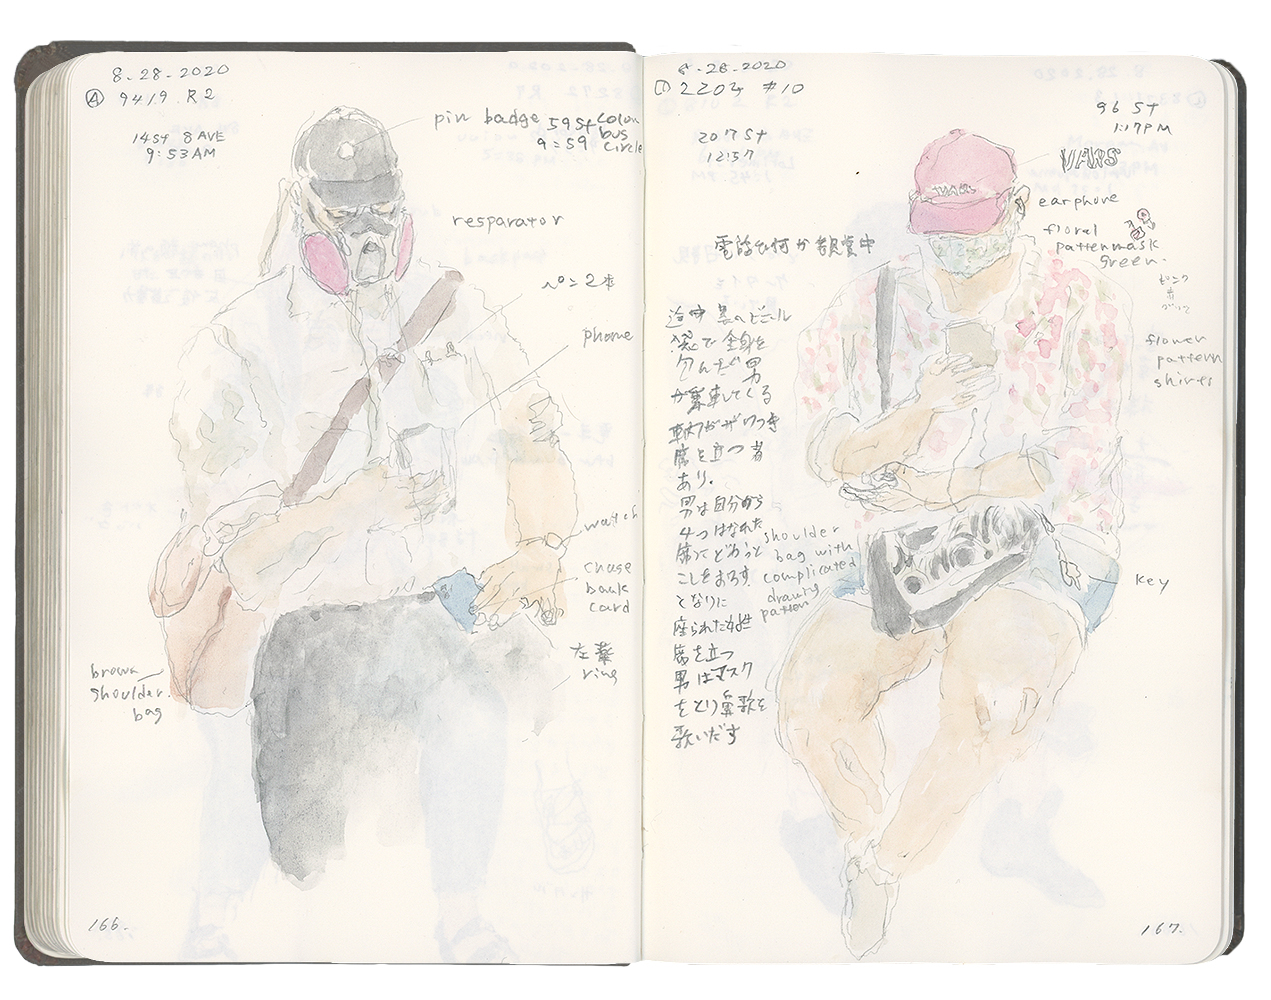 8-28-2020
Ⓐ 9419 R2
14St 8 AVE
9:53AM
pin badge
59St colom
bus
9:59 circle
resparator
ペン2本
phone
watch
chase
bank
card
左薬
ring
brown
shoulder
bag
166.
8-28-2020
2203 #10
207 St
12:57
96 St
1:17PM
VARS
earphone
floral
pattenmask
green.
ピンク
赤
電話で何か
中
flower
pattern
shirts
途中 黒のビニール
袋で全身を
包んだ男
が乗車してくる
車内がザワつき
席を立つ者
あり。
男は自分から
4つはなれた
席にどかっと
こしをおろす
となりに
座られた女性
席を立つ
男はマスク
をとり鼻歌を
歌いだす
shoulder
bag with
complicated
drawing
pattern
key
167.